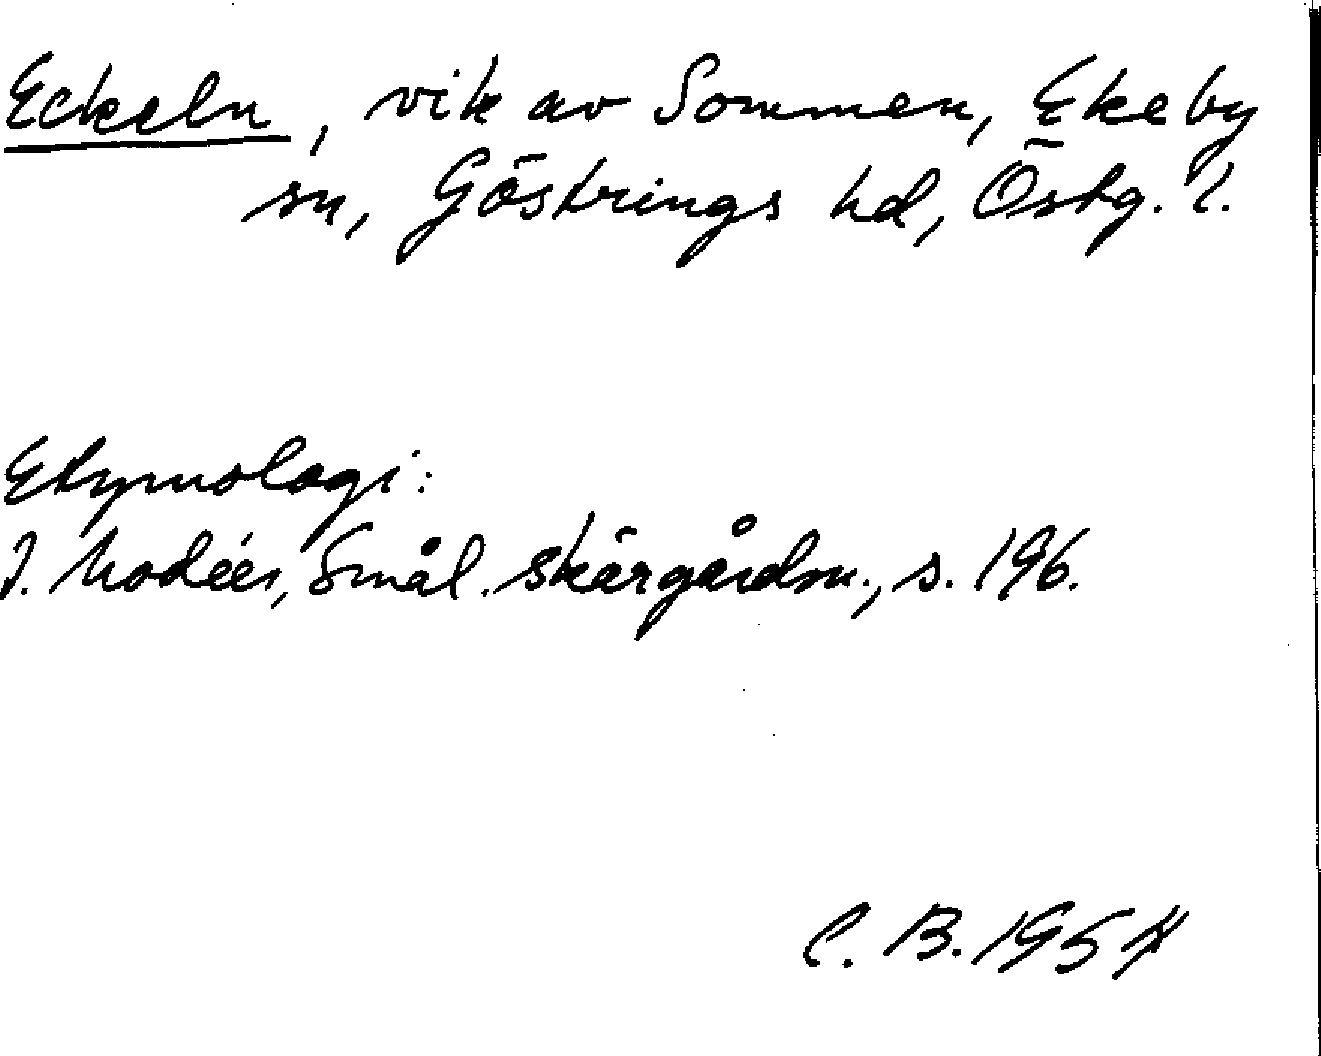 Eckeln, vik av Sommen, Ekeby
sn, Göstrings hd, Östg. l.
Etymologi:
I. Modéer, Smål. skärgårdsn., s. 196.
C. B. 1954